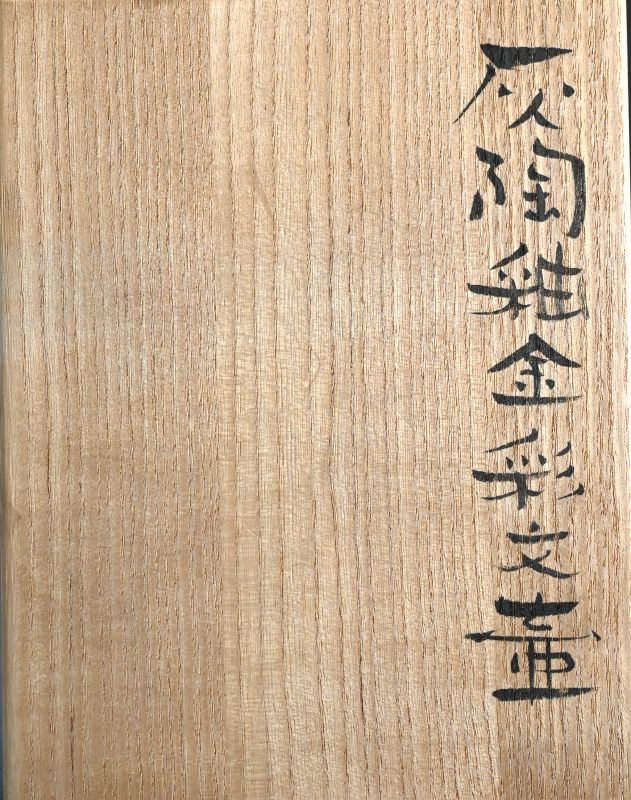 灰陶釉金彩文壷